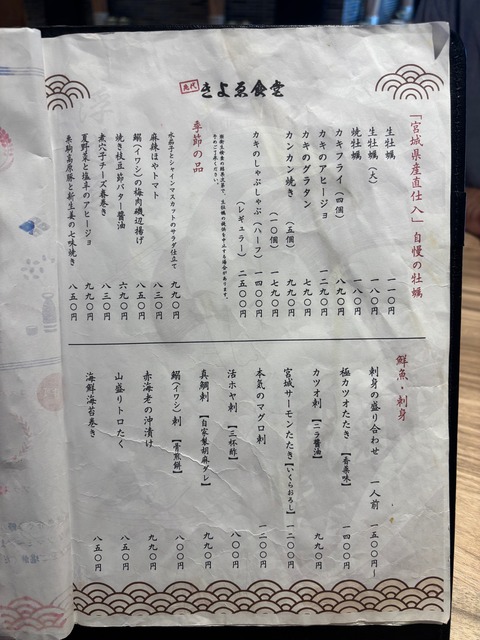 魚代 きよゑ食堂
「宮城県産直仕入」自慢の牡蠣
生牡蠣 一一〇円
生牡蠣（大） 一八〇円
焼牡蠣 一八〇円
カキフライ（四個） 八九〇円
カキのアヒージョ 一二九〇円
カキのグラタン 七九〇円
カンカン焼き（五個） 九九〇円
（一〇個） 一七九〇円
カキのしゃぶしゃぶ（ハーフ） 一四〇〇円
（レギュラー） 二五〇〇円
季節の品
水茄子とシャインマスカットのサラダ仕立て 九九〇円
麻辣ほやトマト 八三〇円
鰯（イワシ）の梅肉磯辺揚げ 八五〇円
焼き枝豆 節バター醤油 六九〇円
煮穴子チーズ春巻き 八三〇円
夏野菜と塩辛のアヒージョ 九九〇円
栗駒高原豚と新生姜の七味焼き 八五〇円
鮮魚・刺身
刺身の盛り合わせ 一人前 一五〇〇円～
極カツオたたき【香薬味】 一四〇〇円
カツオ刺【ニラ醤油】 九九〇円
宮城サーモンたたき【いくらおろし】 一二〇〇円
本気のマグロ刺 一二〇〇円
活ホヤ刺【三杯酢】 八〇〇円
真鯛刺【自家製胡麻ダレ】 九九〇円
鰯（イワシ）刺【骨煎餅】 八〇〇円
赤海老の沖漬け 九九〇円
山盛りトロたく 八五〇円
海鮮海苔巻き 八五〇円